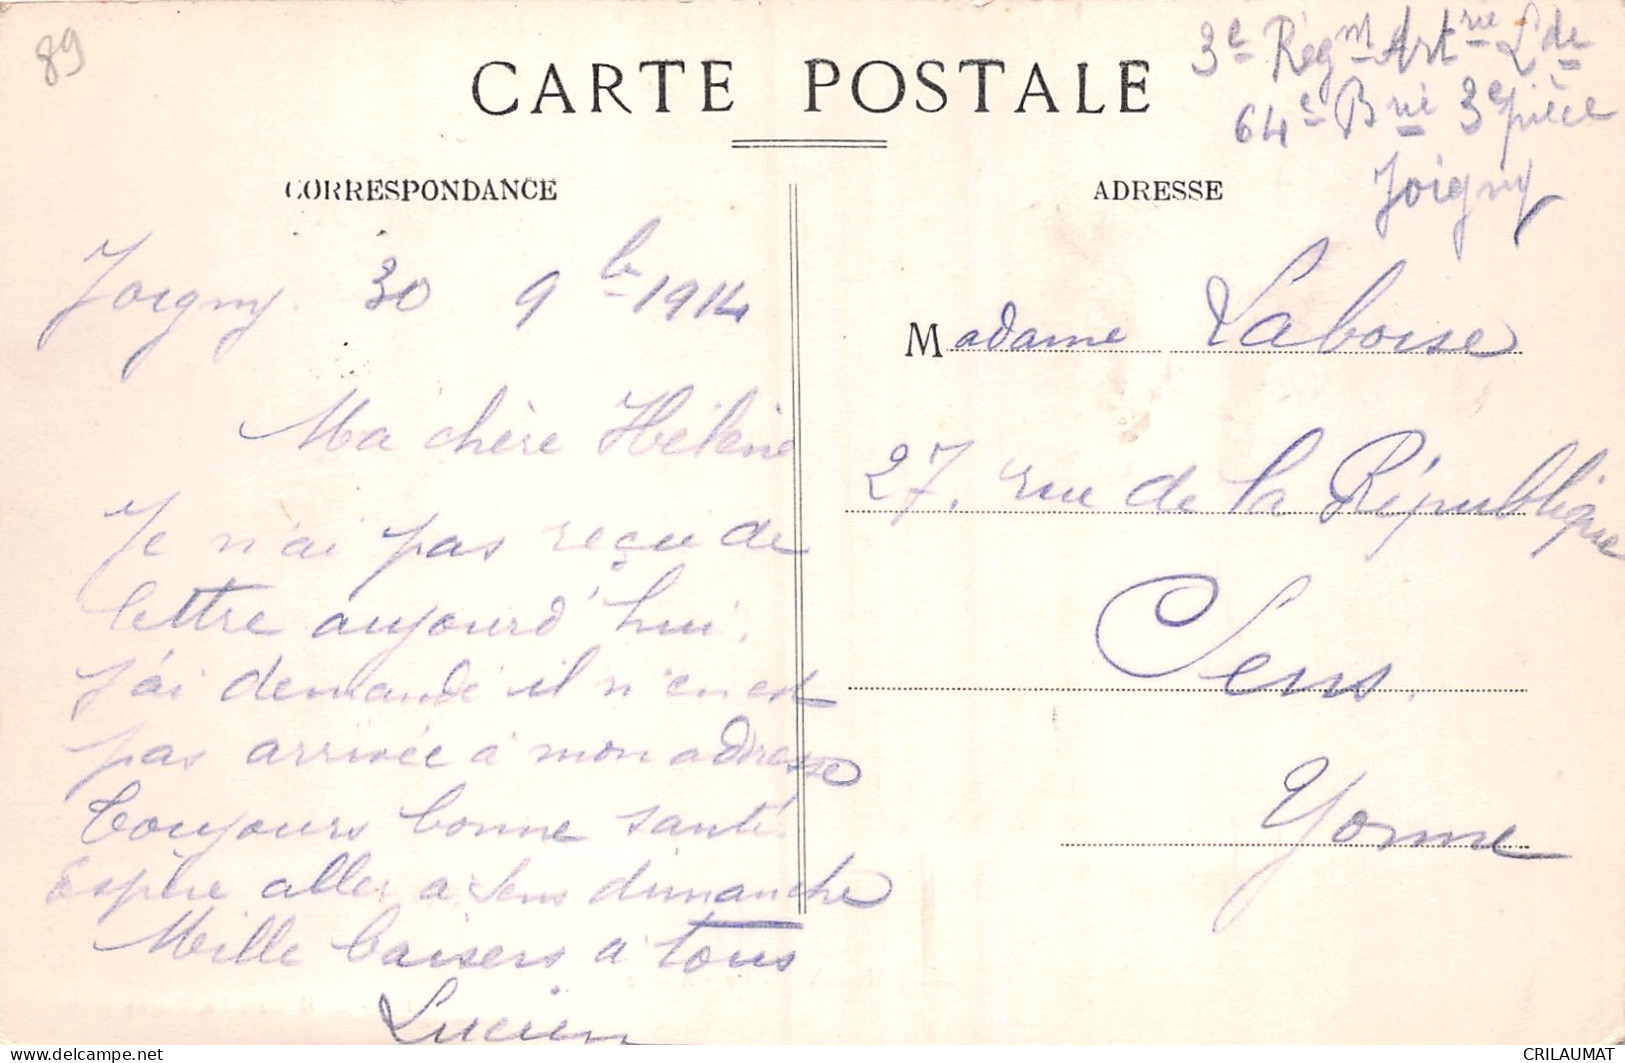 89
CARTE POSTALE
3e Regmt Artrie Lde
64e Brie 3e pièce
Joigny
CORRESPONDANCE
ADRESSE
Joigny 30 9bre 1914
Ma chère Hélène
Je n'ai pas reçu de
lettre aujourd'hui.
J'ai demandé il n'en est
pas arrivée à mon adresse
Toujours bonne santé.
Espère aller à Sens dimanche
Mille baisers à tous
Lucien
Madame Laboise
27, rue de la République
Sens.
Yonne
CRILAUMAT